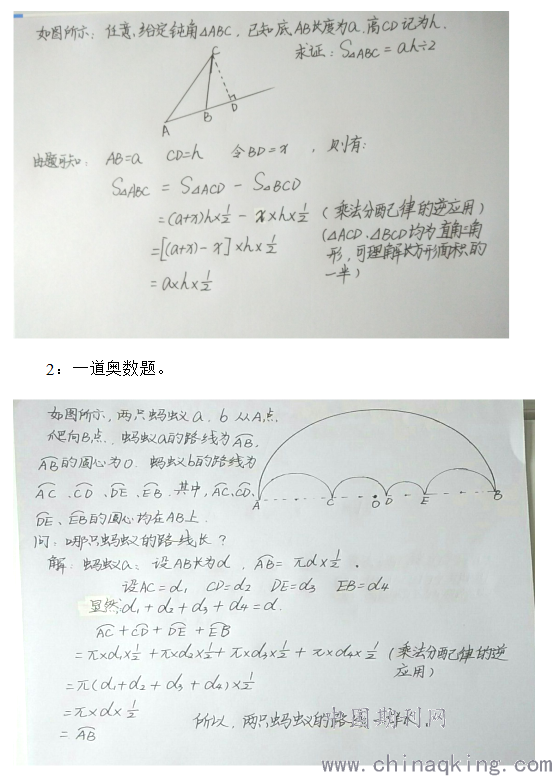 如图所示：任意给定钝角△ABC，已知底AB长度为a，高CD记为h。
求证：S△ABC = ah÷2
C
A
B
D
由题可知： AB=a CD=h 令BD=x ，则有：
S△ABC = S△ACD - S△BCD
=(a+x)h×1/2 - x×h×1/2 （乘法分配律的逆应用）
=[(a+x)-x]×h×1/2
（△ACD、△BCD均为直角三角
形，可理解长方形面积的
一半）
=a×h×1/2
2：一道奥数题。
如图所示，两只蚂蚁a、b从A点，
爬向B点，蚂蚁a的路线为A͡B，
A͡B的圆心为O．蚂蚁b的路线为
A͡C、C͡D、D͡E、E͡B．其中，A͡C、C͡D、
D͡E、E͡B的圆心均在AB上．
A C O D E B
问：哪只蚂蚁的路线长？
解：蚂蚁a：设AB长为d，A͡B=πd×1/2．
设AC=d₁ CD=d₂ DE=d₃ EB=d₄
显然：d₁+d₂+d₃+d₄=d．
A͡C+C͡D+D͡E+E͡B
=π×d₁×1/2+π×d₂×1/2+π×d₃×1/2+π×d₄×1/2（乘法分配律的逆
应用）
=π(d₁+d₂+d₃+d₄)×1/2
=π×d×1/2
=A͡B
所以，两只蚂蚁的路
期刊网
www.chinaqking.com